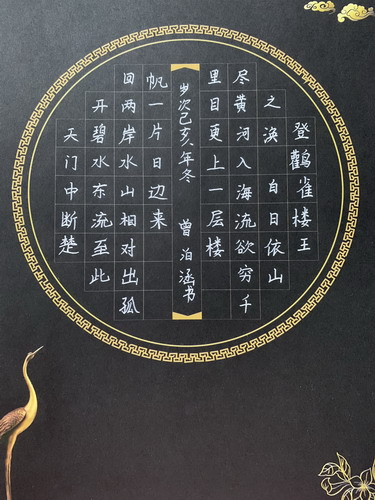 登鸛雀楼王
之涣 白日依山
尽黄河入海流欲穷千
里目更上一层楼
岁次己亥年冬 曾泊涵书
帆一片日边来
回两岸水山相对出孤
丹碧水东流至此
天门中断楚